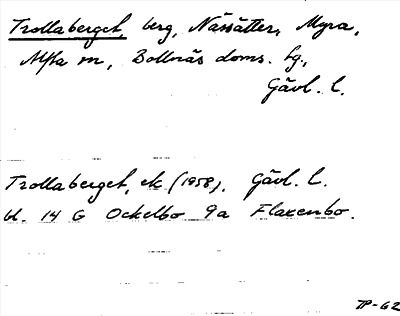 Trollaberget, berg, Nässätter, Myra,
Alfta sn, Bollnäs doms. hg.,
Gävl. l.
Trollaberget, ek (1958), Gävl. l.
bl. 14 G Ockelbo 9a Flaxenbo.
TP-62